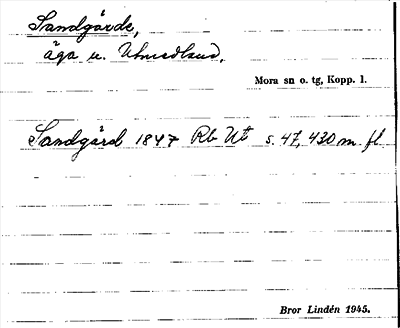 Sandgärde,
äga u. Utmedland,
Mora sn o. tg, Kopp. l.
Sandgärd 1847 Rb Ut s. 47, 430 m. fl
Bror Lindén 1945.